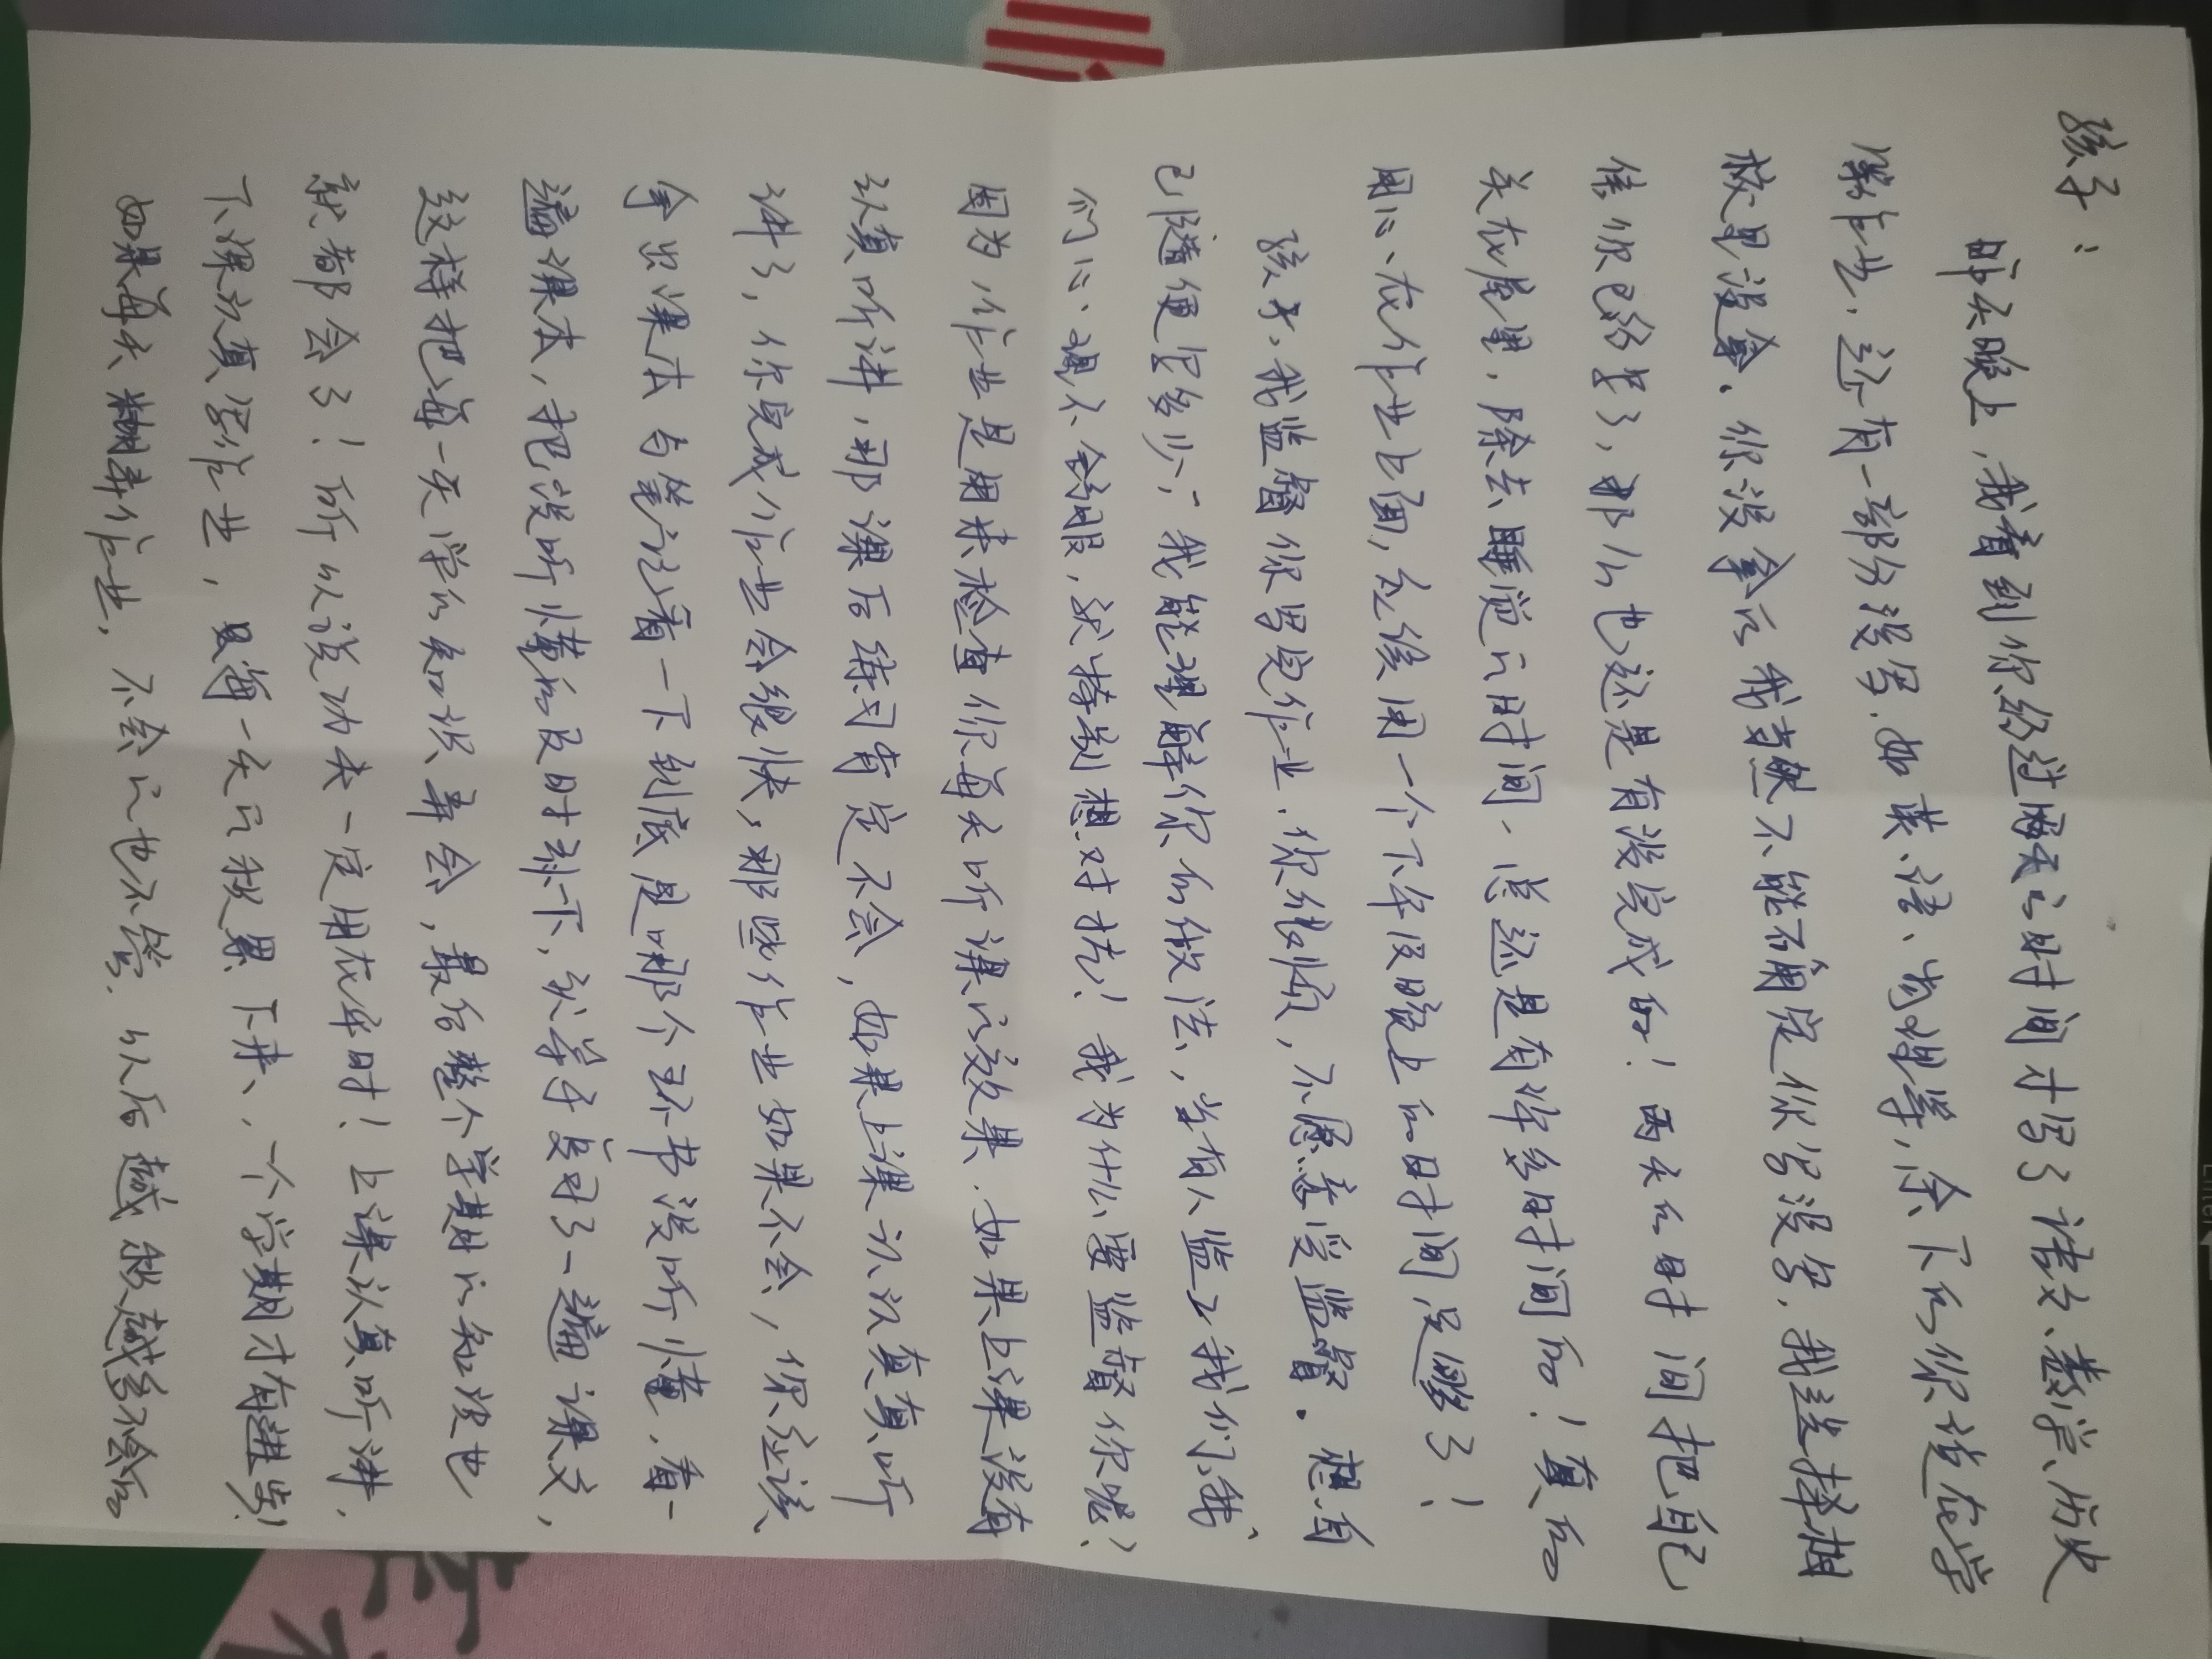 孩子：
昨天晚上，我看到你经过两天的时间才写了语文、数学、历史
等作业，还有一部分没写，如英语、物理等，余下的你说在学
校里没拿、你没拿的我当然不能确定你写没写，我选择相
信你已经写了，那么也还是有没完成的！两天的时间把自己
关在屋里，除去睡觉的时间，总还是有许多时间的！真的
用心在作业上面，应该用一个下午及晚上的时间足够了！
孩子，我监督你写完作业，你很烦，不愿意受监督。想自
己随便写多少，我能理解你的做法，当有人监工我们、我
们心理不会舒服，就特别想对抗！我为什么要监督你呢？
因为，作业是用来检查你每天听课的效果，如果上课没有
认真听讲，那课后练习肯定不会，如果上课认认真真听
讲了，你完成作业会很快，那些作业如果不会，你应该
拿出课本与笔记看一下到底是哪个环节没听懂，看一
遍课本，把没听懂的及时补下，就等于复习了一遍课文，
这样把每一天学的知识弄会，最后整个学期的知识也
就都会了！所以说功夫一定用在平时！上课认真听讲，
下课认真写作业，只每一天的积累下来，一个学期才有进步！
如果每天糊弄作业，不会的也不管，以后越积越多不会的